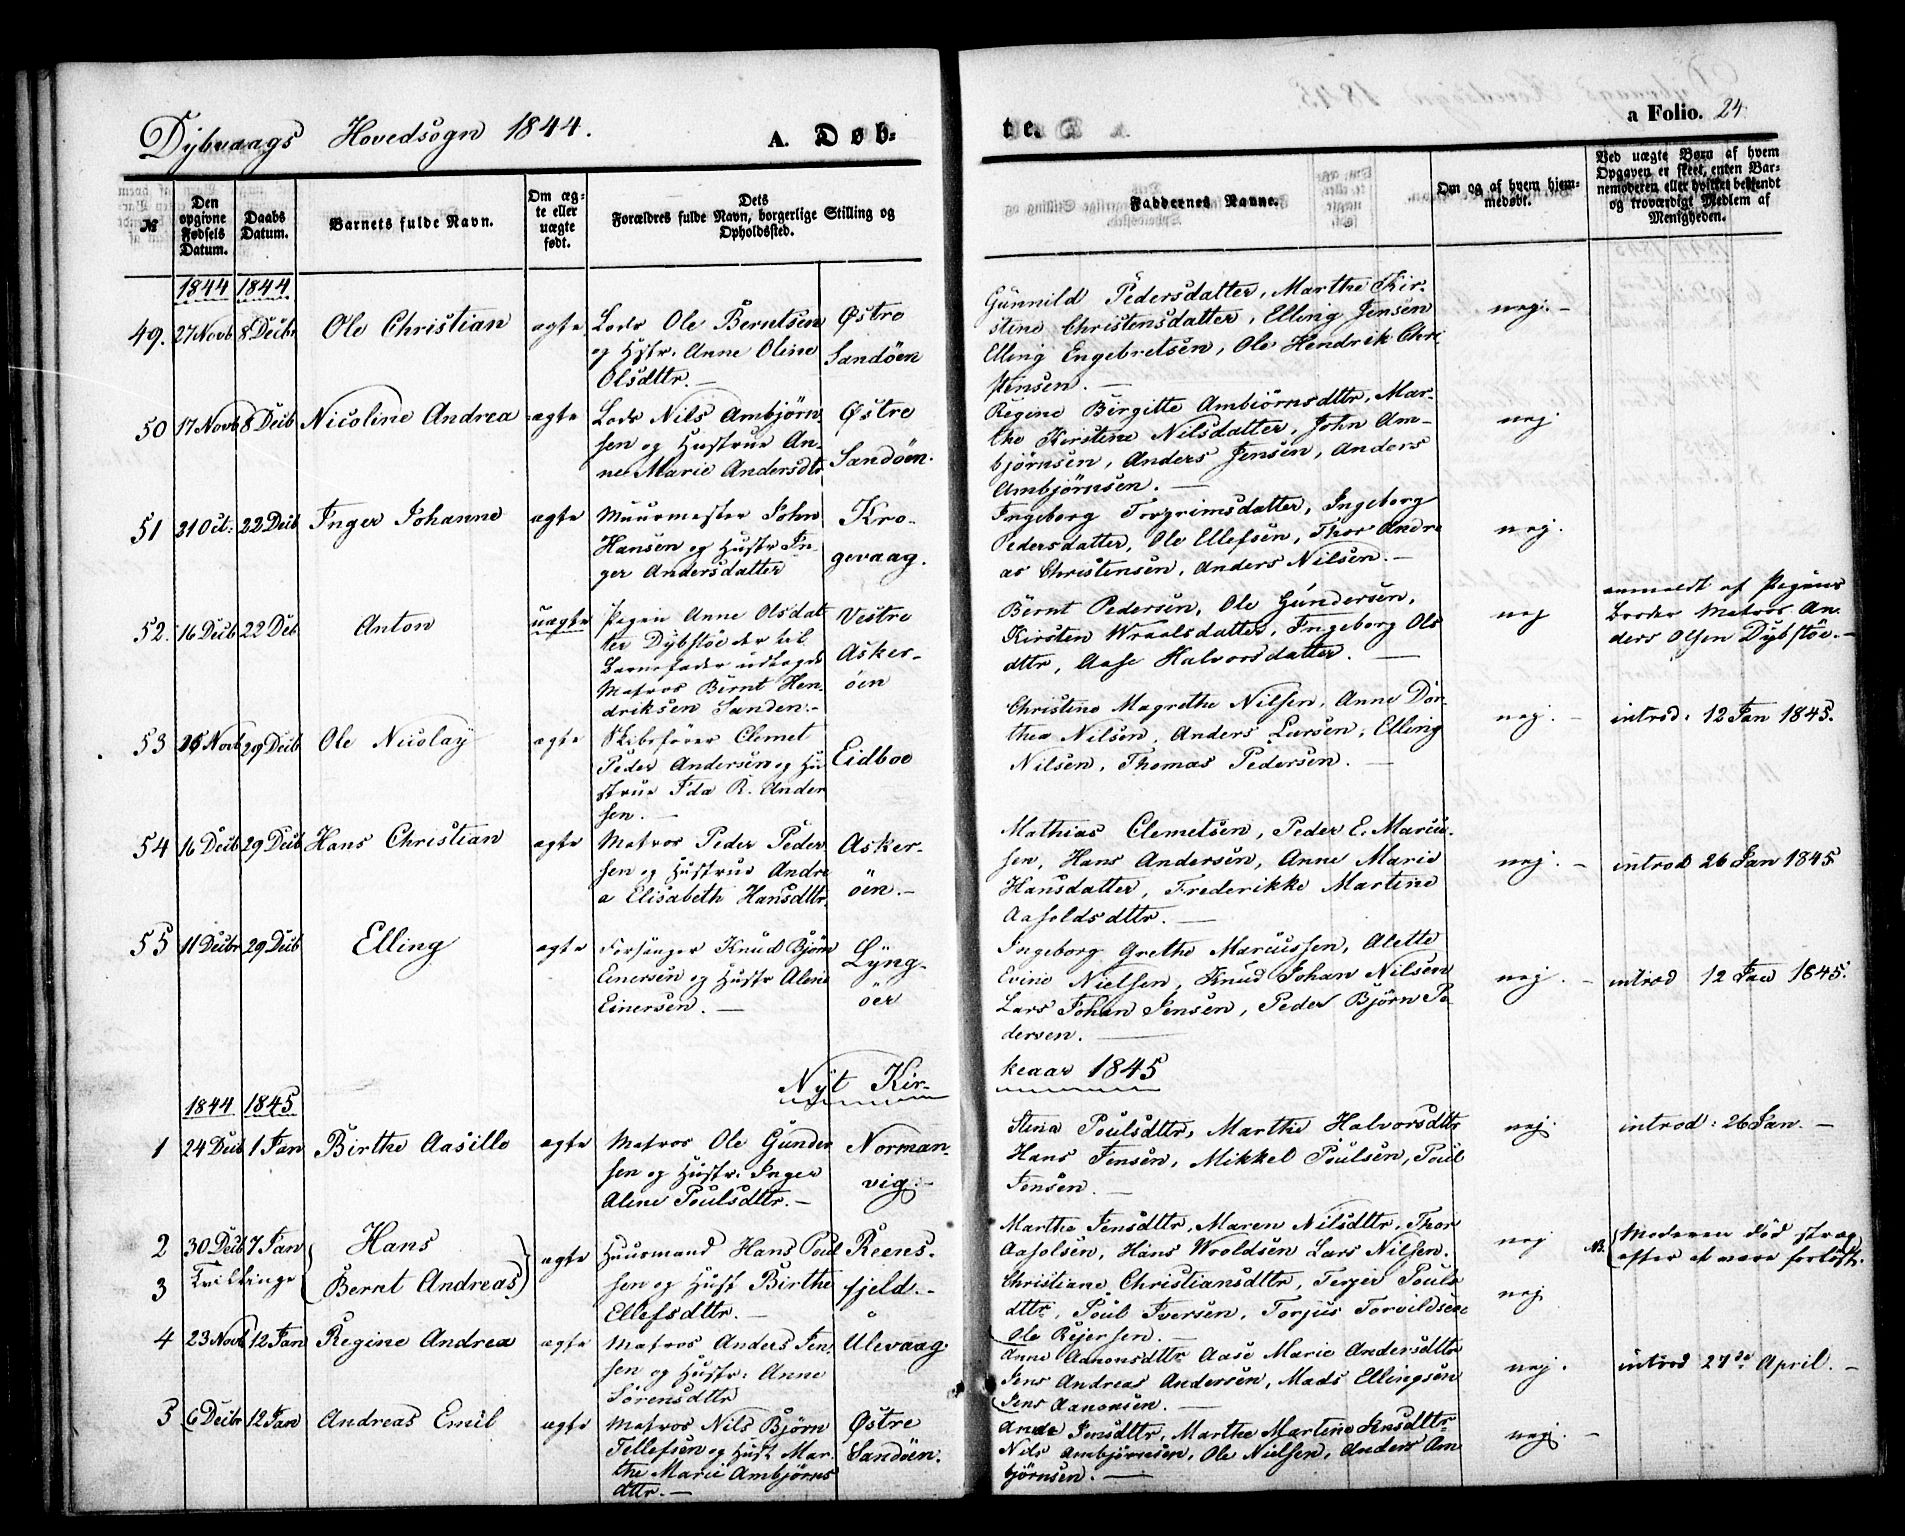 Dybvaags Hovedsogn 1844.
A. Døb-
te.
a Folio. 24
№
Den opgivne Fødsels Datum.
Daabs Datum.
Barnets fulde Navn.
Om ægte eller uægte født.
Dets Forældres fulde Navn, borgerlige Stilling og Opholdssted.
Faddernes Navne.
Om og af hvem hjemmedøbt.
Ved uægte Børn af hvem Opgaven er skeet, enten Barnemoderen eller hvilket bekjendt og troværdigt Medlem af Menigheden.
1844 1844
49. 27 Novb 8 Decbr Ole Christian ægte Lods Ole Berntsen
og Hstr. Anne Oline
Olsdttr. —
Østre
Sandøen
Gunnild Pedersdatter, Marthe Kir-
stine Christensdatter, Elling Jensen
Elling Engebretsen, Ole Hendrik Chri
stensen. —
nej. —
50 17 Novb 8 Decb Nicoline Andrea ægte Lods Nils Ambjørn
sen og Hustrue An-
ne Marie Andersdtr
Østre
Sandøen.
Regine Birgitte Ambiörnsdttr, Mar-
the Kirstine Nilsdatter, John Am-
bjørnsen, Anders Jensen, Anders
Ambjørnsen. —
nej
51 21 Oct. 22 Decb Inger Johanne ægte Muurmester John
Hansen og Hustr In-
ger Andersdatter
Kro-
gevaag.
Ingeborg Torgrimsdatter, Ingeborg
Pedersdatter, Ole Ellefsen, Thor Andre
as Christensen, Anders Nilsen. —
nej.
52. 16 Decb 22 Deb. Anton uægte Pigen Anne Olsdat
ter Dybstöe der til
Barnefader udlagde
Matros Bernt Hen-
driksen Sanden. -
Vestre
Asker-
öen
Bernt Pedersen, Ole Gundersen,
Kirsten Wraalsdatter, Ingeborg Ols
dttr, Aase Halvorsdatter. —
nej
anmeldt af Pigens
Broder Matros An-
ders Olsen Dybstöe. -
53 Novb 29 Decb Ole Nicolay ægte Skibsfører Clemet
Peder Andersen og Hu
strue Ida R. Ander
sen. —
Eidboe
Christine Magrethe Nilsen, Anne Dor-
thea Nilsen, Anders Larsen, Elling
Nilsen, Thomas Pedersen. —
nej. —
introd: 12 Jan 1845.
54 16 Decb 29 Decb Hans Christian ægte Matros Peder Peder
sen og Hustrue Andre
a Elisabeth Hansdttr.
Asker-
öen. —
Mathias Clemetsen, Peder E. Marcus-
sen, Hans Andersen, Anne Marie
Hansdatter, Frederikke Martine
Aasoldsdttr. —
nej. —
introd 26 Jan 1845
55 11 Decbr 29 Decb Elling ægte Forsanger Knud Bjørn
Einersen og Hustr Alene
Einersen. —
Lyng-
öer
Ingeborg Grethe Marcussen, Alette
Evine Nielsen, Knud Johan Nilsen
Lars Johan Jensen, Peder Bjørn Pe-
dersen. —
nej. —
introd 12 Jan 1845.
Nyt Kir-
keaar 1845
1844 1845
1 24 Decb 1 Jan Birthe Aasille ægte Matros Ole Gunder
sen og Hustr. Inger
Alene Poulsdttr. —
Norman-
vig. —
Stena Poulsdttr, Marthe Halvorsdttr
Hans Jensen, Mikkel Poulsen, Poul
Jensen. —
nej.
introd: 26 Jan. —
2 30 Decb 7 Jan Hans
3 Tvillinge Bernt Andreas
ægte Huusmand Hans Poul
sen og Hust Birthe
Ellefsdttr. —
Reens-
fjeld. -
Marthe Jensdttr, Maren Nilsdttr, Thor
Aasolsen, Hans Wroldsen Lars Nilsen.
nej
NB. Moderen död strag
efter at være forløst.
Christiane Christiansdttr, Terjer Pouls
dttr, Poul Iversen, Torjus Torvildsen
Ole Rejersen. —
nej
4 23 Novb 12 Jan Regine Andrea ægte Matros Anders Jen-
sen og Hustr. Anne
Sørensdttr
Ulevaag
Anne Aanonsdttr Aase Marie Andersdttr
Jens Andreas Andersen, Mads Ellingsen
Jens Aanonsen. —
nej.
introd 27de April. —
5 6 Decbr 12 Jan Andreas Emil ægte Matros Nils Bjørn
Tellefsen og Hust Mar-
the Marie Ambjørns
dttr. —
Østre
Sandøen.
Jensdttr, Marthe Martine Jensdttr
Nils Ambjørnsen, Ole Nielsen, Anders Am
bjørnsen. —
nej. —